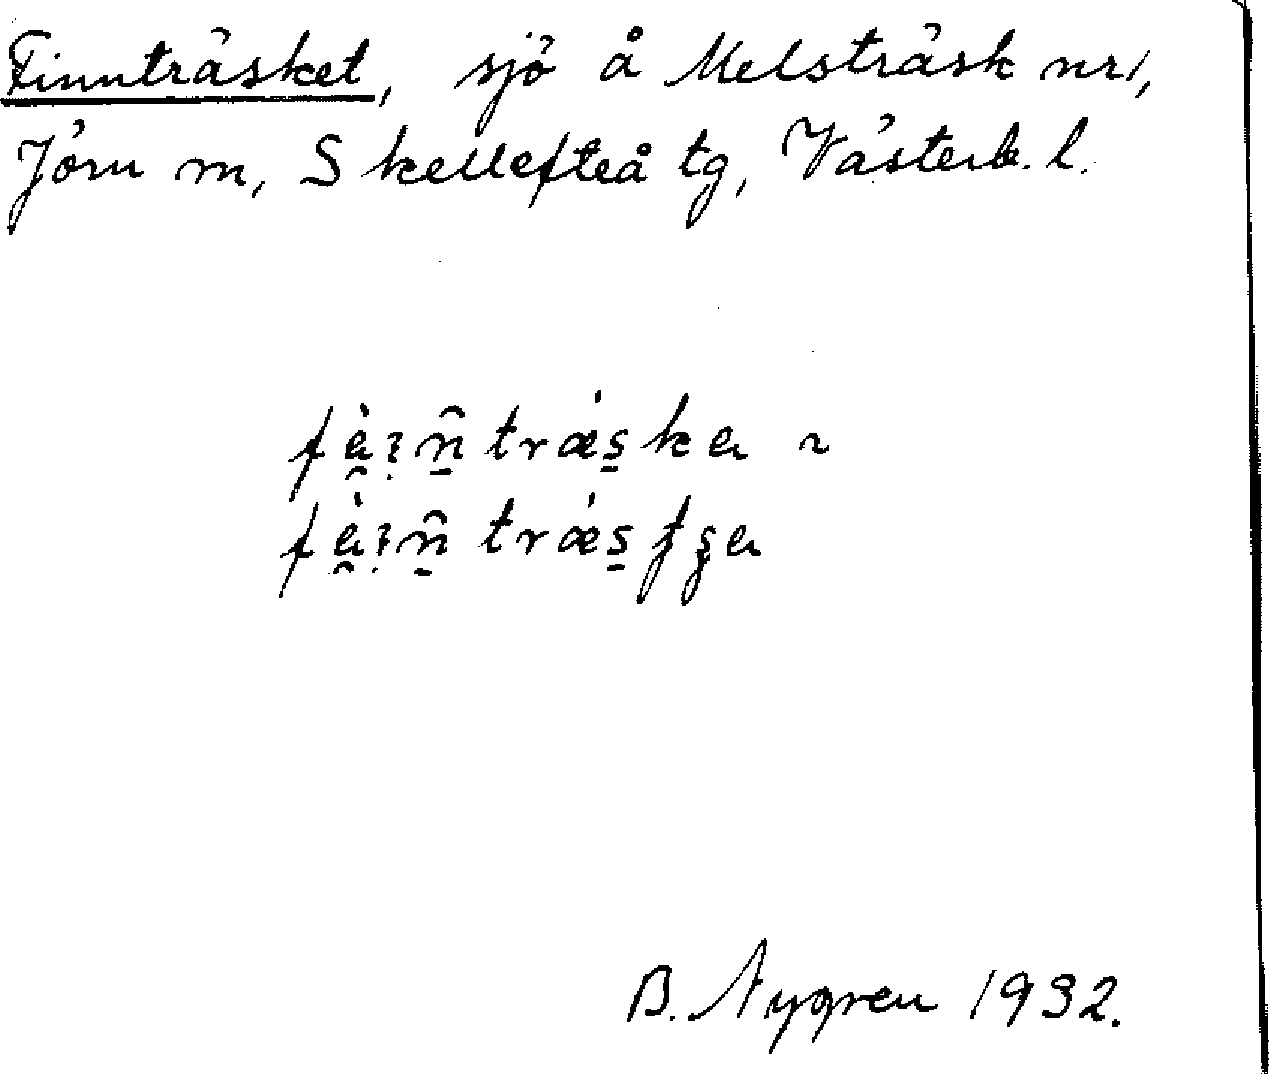 Finnträsket, sjö å Melsträsk nr 1,
Jörn m, Skellefteå tg, Västerb. l.
fè̯ı̣n̠̑træ̍s̠ka ~
fè̯ı̣n̠̑træ̍s̠ʄʒa
B. Nygren 1932.